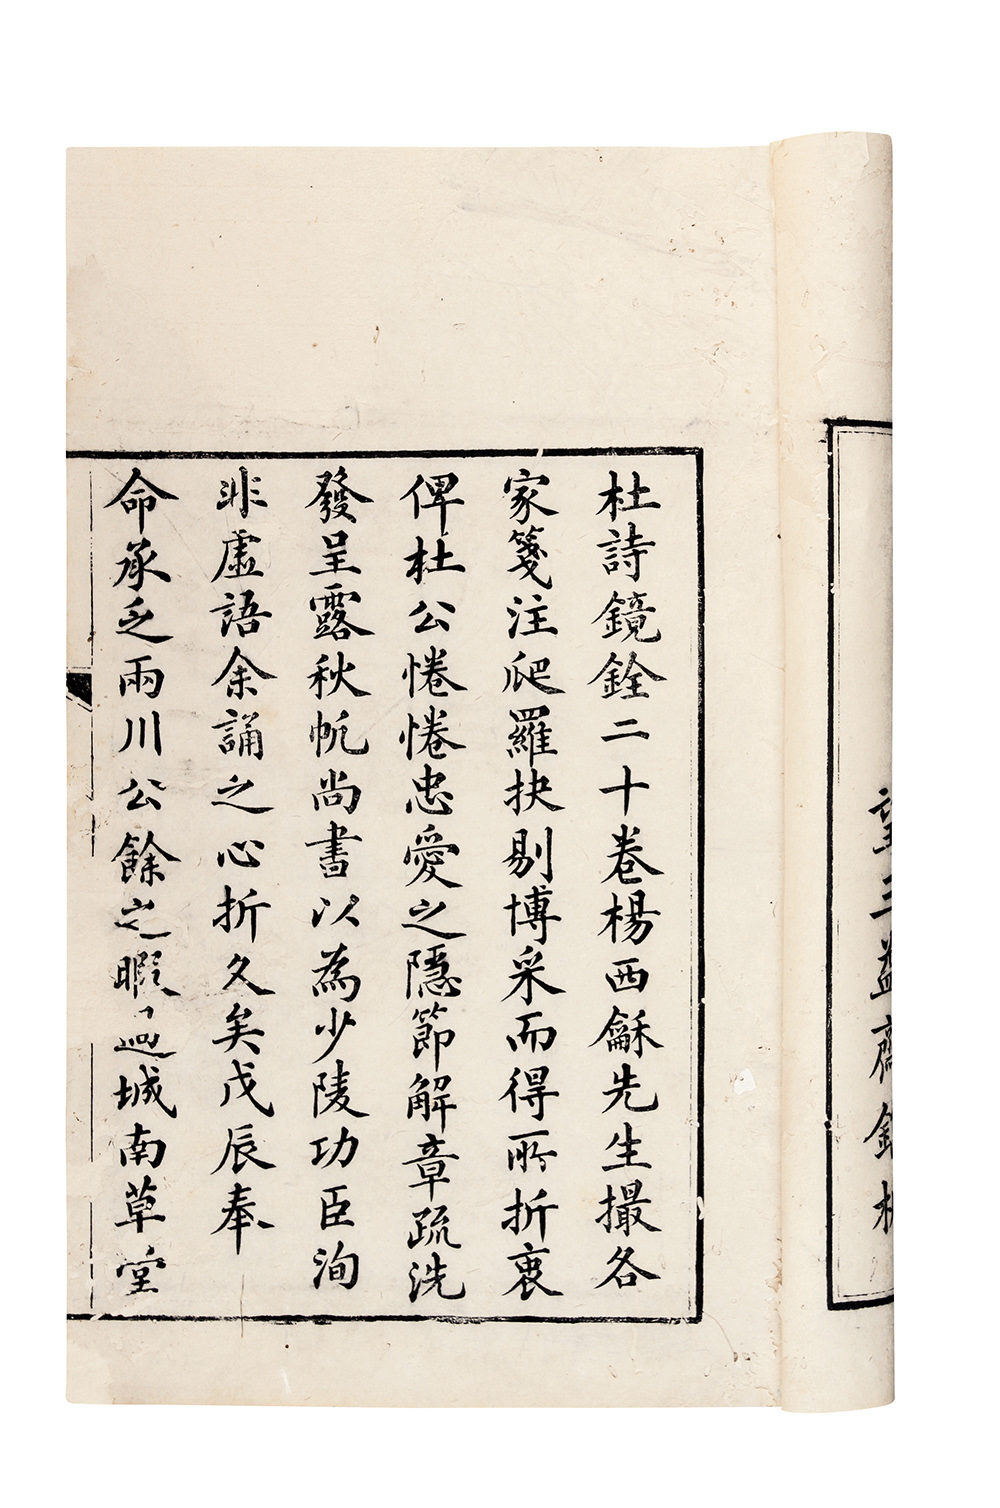 望三益齋
杜詩鏡銓二十卷楊西龢先生撮各
家箋注爬羅抉剔博采而得所折衷
俾杜公惓惓忠愛之隱節解章疏洗
發呈露秋帆尚書以為少陵功臣洵
非虛語余誦之心折久矣戊辰奉
命承乏兩川公餘之暇過城南草堂